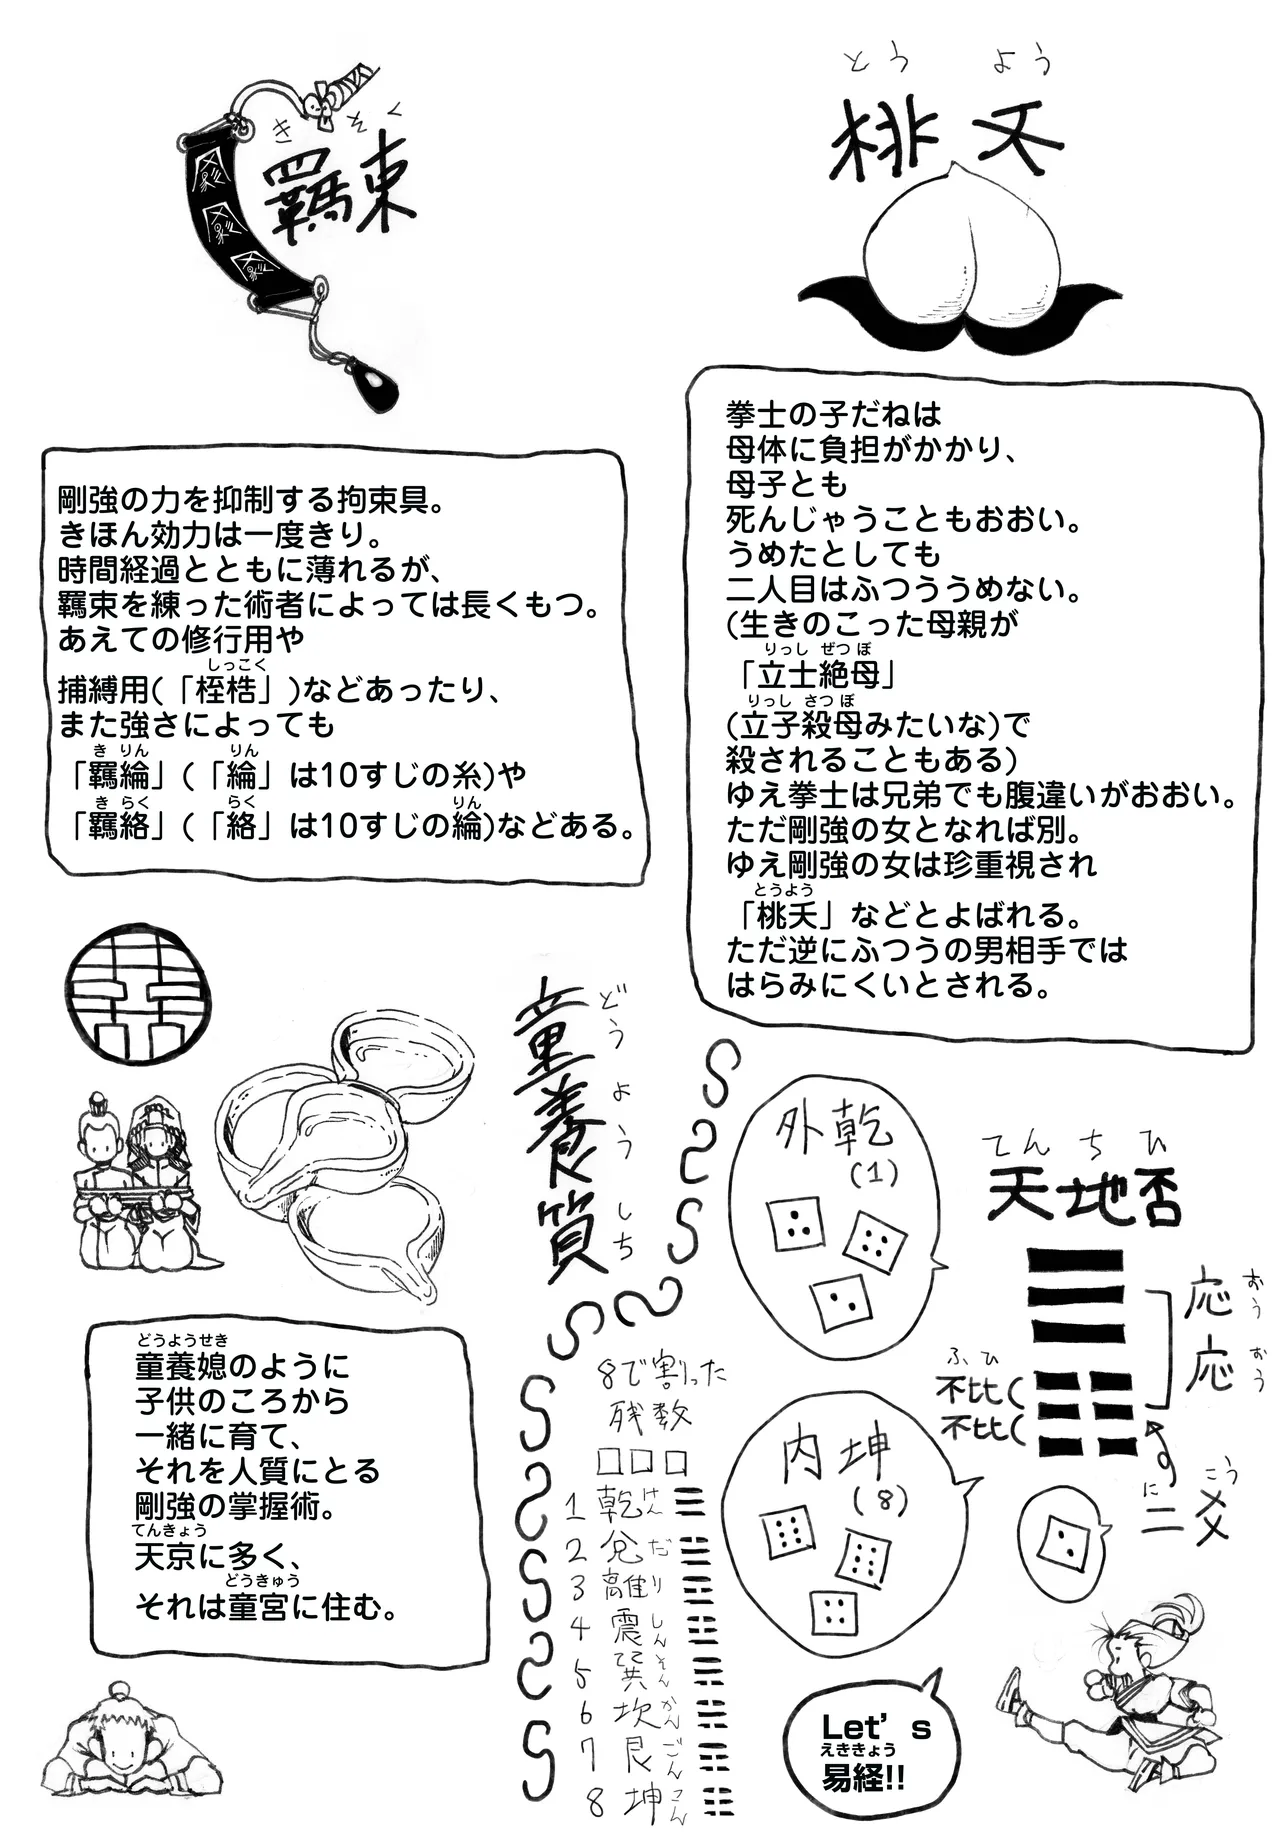 とうよう
桃夭
きそく
羈束
拳士の子だねは
母体に負担がかかり、
母子とも
死んじゃうこともおおい。
うめたとしても
二人目はふつううめない。
(生きのこった母親が
りっし ぜつ ぼ
「立士絶母」
りっし さつ ぼ
(立子殺母みたいな)で
殺されることもある)
ゆえ拳士は兄弟でも腹違いがおおい。
ただ剛強の女となれば別。
ゆえ剛強の女は珍重視され
とうよう
「桃夭」などとよばれる。
ただ逆にふつうの男相手では
はらみにくいとされる。
剛強の力を抑制する拘束具。
きほん効力は一度きり。
時間経過とともに薄れるが、
羈束を練った術者によっては長くもつ。
あえての修行用や
しっこく
捕縛用(「桎梏」)などあったり、
また強さによっても
き りん りん
「羈綸」(「綸」は10すじの糸)や
き らく らく りん
「羈絡」(「絡」は10すじの綸)などある。
どうようしち
童養質
どうようせき
童養媳のように
子供のころから
一緒に育て、
それを人質にとる
剛強の掌握術。
てんきょう
天京に多く、
どうきゅう
それは童宮に住む。
外乾
(1)
てんちひ
天地否
応 おう
応 おう
ふひ
不比(
不比(
にこう
二爻
内坤
(8)
8で割った
残数
□□□
1 乾 けん ☰
2 兌 だ ☱
3 離 り ☲
4 震 しん ☳
5 巽 そん ☴
6 坎 かん ☵
7 艮 ごん ☶
8 坤 こん ☷
Let's
えききょう
易経!!